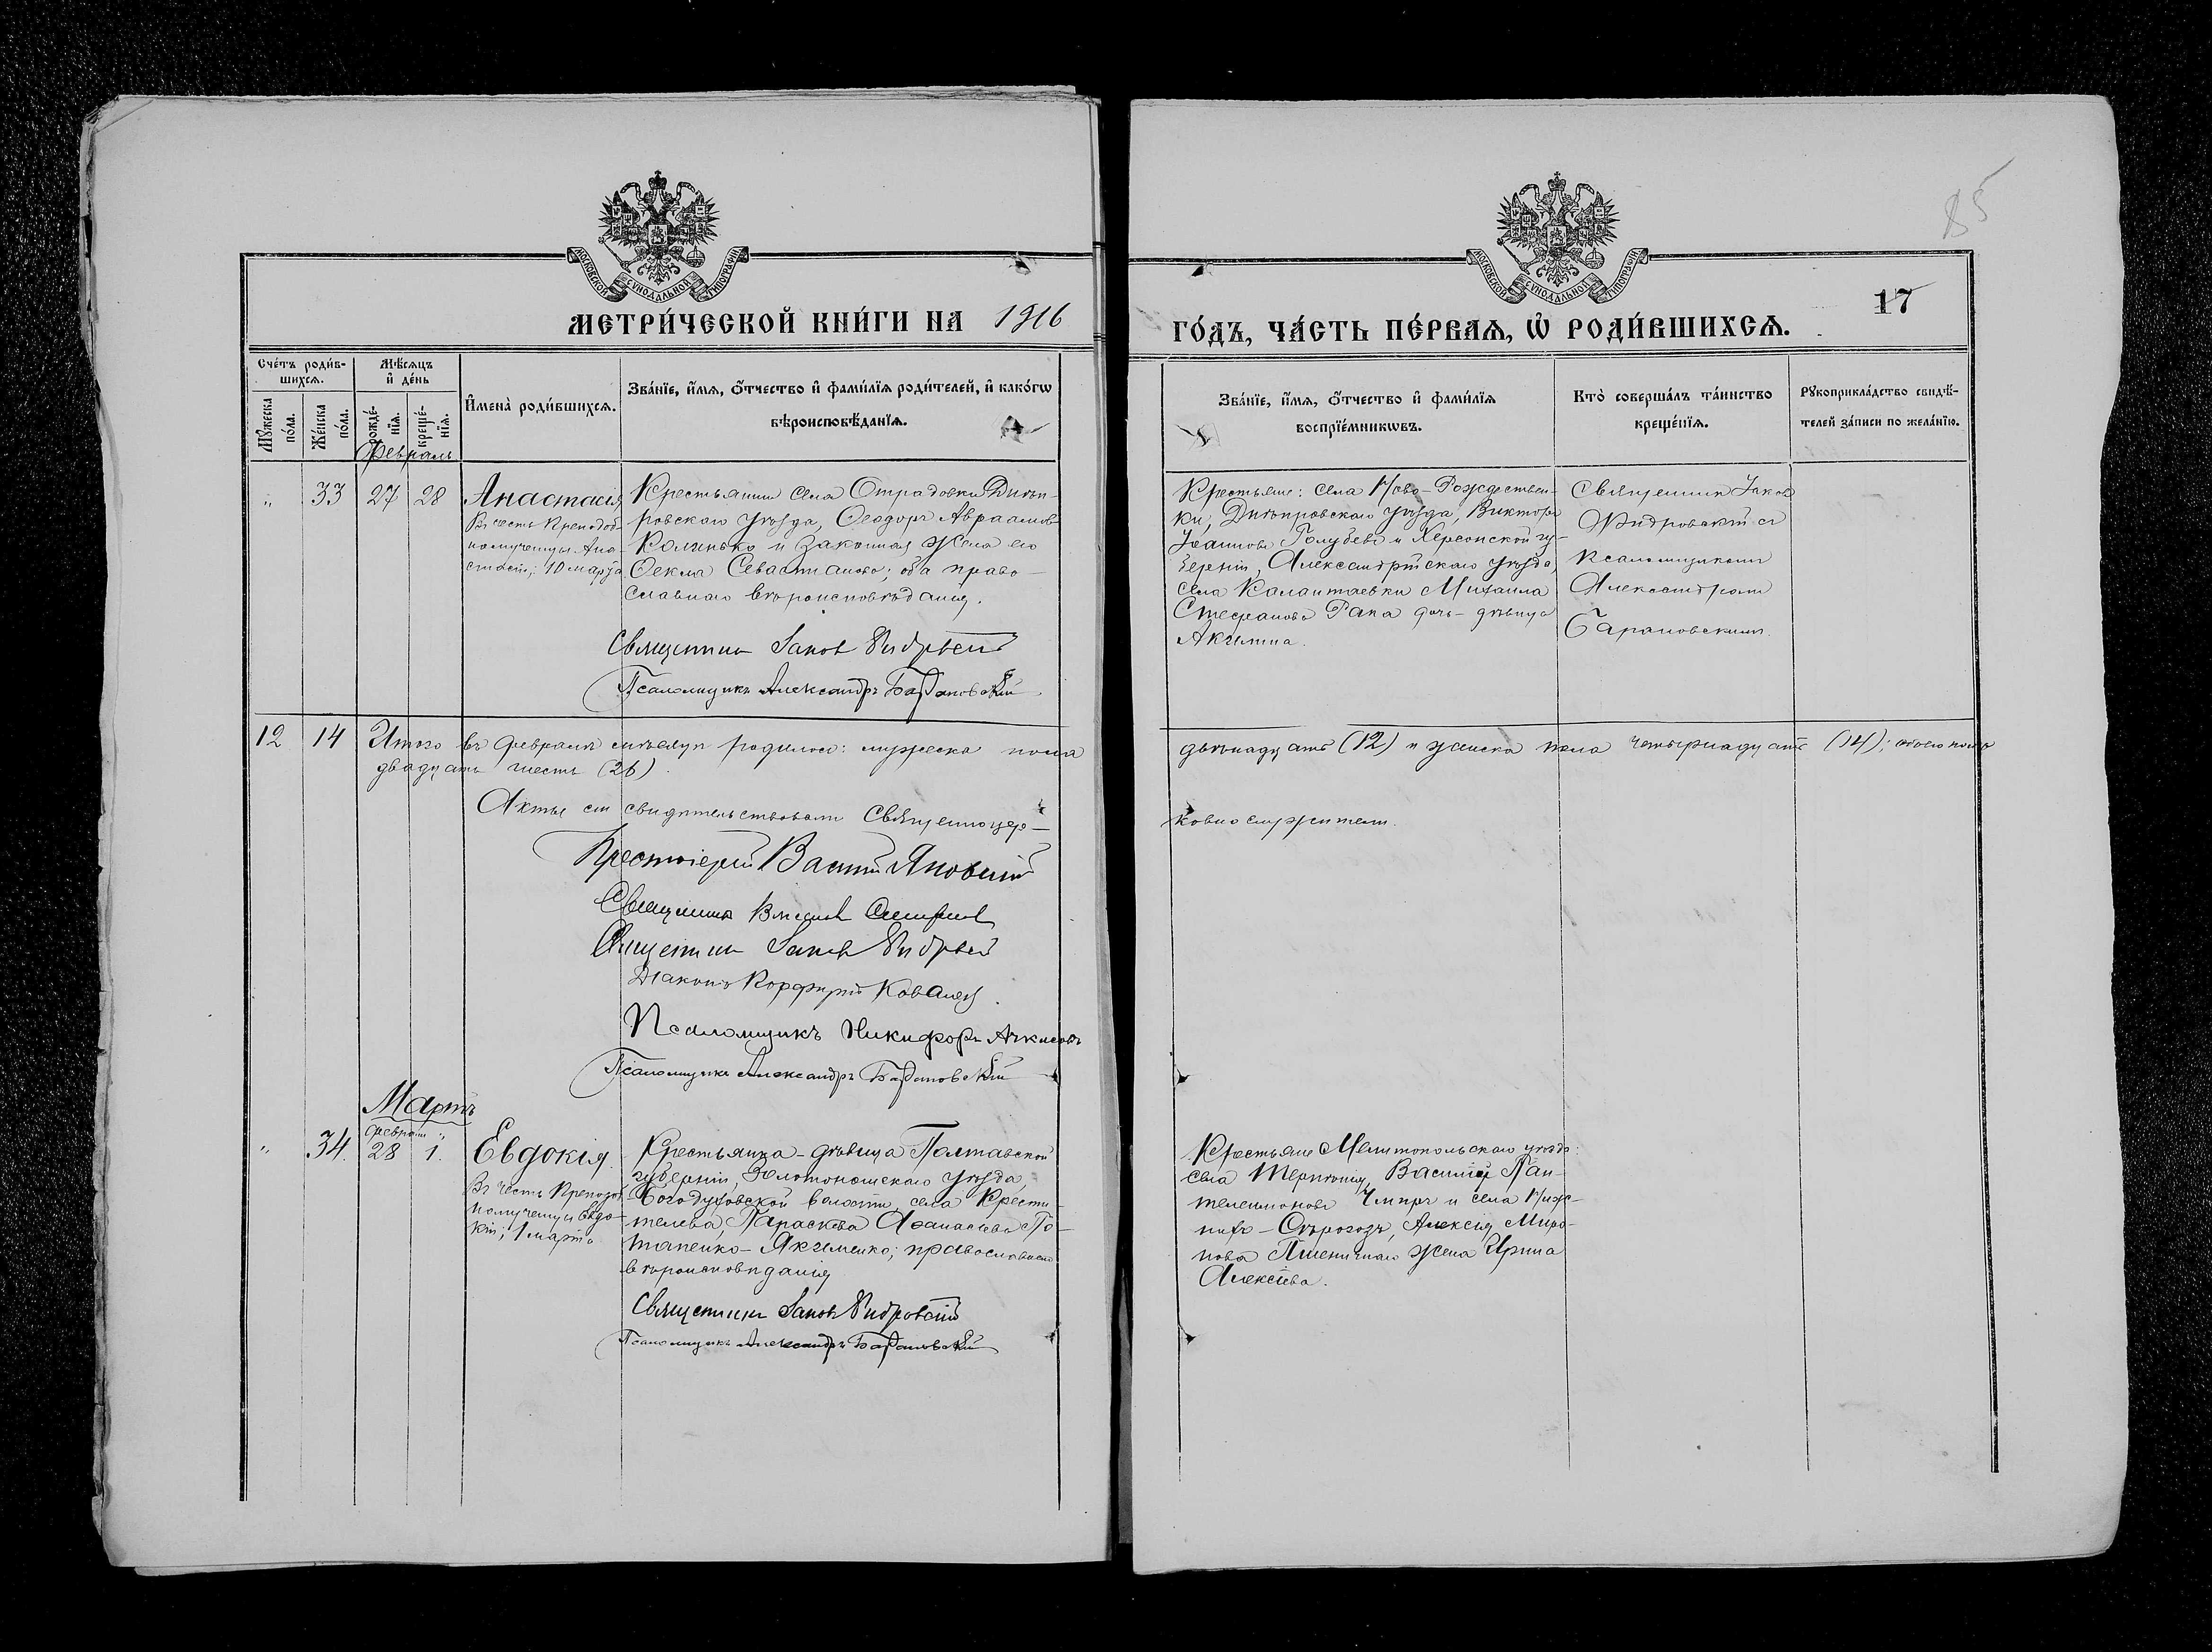 МОСКОВСКОЙ СѴНОДАЛЬНОЙ ТИПОГРАФІИ
МЕТРИ́ЧЕСКОЙ КНИ́ГИ НА 1916
Сче́тъ роди́в-
шихсѧ.
Мѣ́сѧцъ
и҆ де́нь
Мꙋ́жеска
по́ла.
Же́нска
по́ла.
рожде́-
нїѧ.
креще́-
нїѧ.
И҆мена̀ роди́вшихсѧ.
Зва́нїе, и҆́мѧ, о҆́тчество и҆ фами́лїѧ роди́телей, и҆ како́гѡ
вѣроисповѣ́данїѧ.
Февраль
" 33 27 28 Анастасія
Въ честь Преподоб-
номученицы Ана-
стасіи; 10 марта
Крестьянинъ села Отрадовки Днѣп-
ровскаго уѣзда, Ѳеодоръ Авраамовъ
и законная жена его
Ѳекла Севастіанова; оба право-
славнаго вѣроисповѣданія.
Священникъ Іаковъ
Псаломщикъ Александръ Барановскій
12 14 Итого въ февралѣ мѣсяцѣ родилось: мужеска пола
двадцать шесть (26)
Акты сіи свидѣтельствовали Священноцер-
Протоіерей Василій Яновскій
Священникъ
Священникъ Іаковъ
Діаконъ Порфирій Ковалец
Псаломщикъ Никифоръ
Псаломщикъ Александръ Барановскій
Мартъ
Февраля "
" 34. 28 1. Евдокія.
Въ честь Преподоб
номученицы Евдо-
кіи; 1 марта
Крестьянка-дѣвица Полтавской
губерніи, Золотоношскаго уѣзда,
Богодуховской волости, села Крести-
телева, Параскева Аѳанасіева По-
тапенко-Якименко; православнаго
вѣроисповѣданія
Священникъ Іаковъ
Псаломщикъ Александръ Барановскій
85
МОСКОВСКОЙ СѴНОДАЛЬНОЙ ТИПОГРАФІИ
17
ГО́ДЪ, ЧА́СТЬ ПЕ́РВАѦ, Ѡ҆ РОДИ́ВШИХСѦ.
Зва́нїе, и҆́мѧ, о҆́тчество и҆ фами́лїѧ
воспрїе́мникѡвъ.
Кто̀ соверша́лъ та́инство
креще́нїѧ.
Рꙋкоприкла́дство свидѣ́-
телей за́писи по жела́нїю.
Крестьяне: села Ново-Рождествен-
ки, Днѣпровскаго уѣзда, Викторъ
Іоанновъ Голубевъ и Херсонской гу-
берніи, Александрійскаго уѣзда,
села Калантаевки Михаила
Стефанова Рака дочь-дѣвица
Акилина.
Священникъ Іаковъ
съ
псаломщикомъ
Александромъ
Барановскимъ.
двѣнадцать (12) и женска пола четырнадцать (14); обоего пола
ковнослужители.
Крестьяне Мелитопольскаго уѣзда:
села Терпѣнія, Василій Пан-
телеимоновъ Чмиръ и села Ниж-
нихъ-Сѣрогозъ, Алексія Миро-
нова Пшеничнаго жена Ирина
Алексіева.